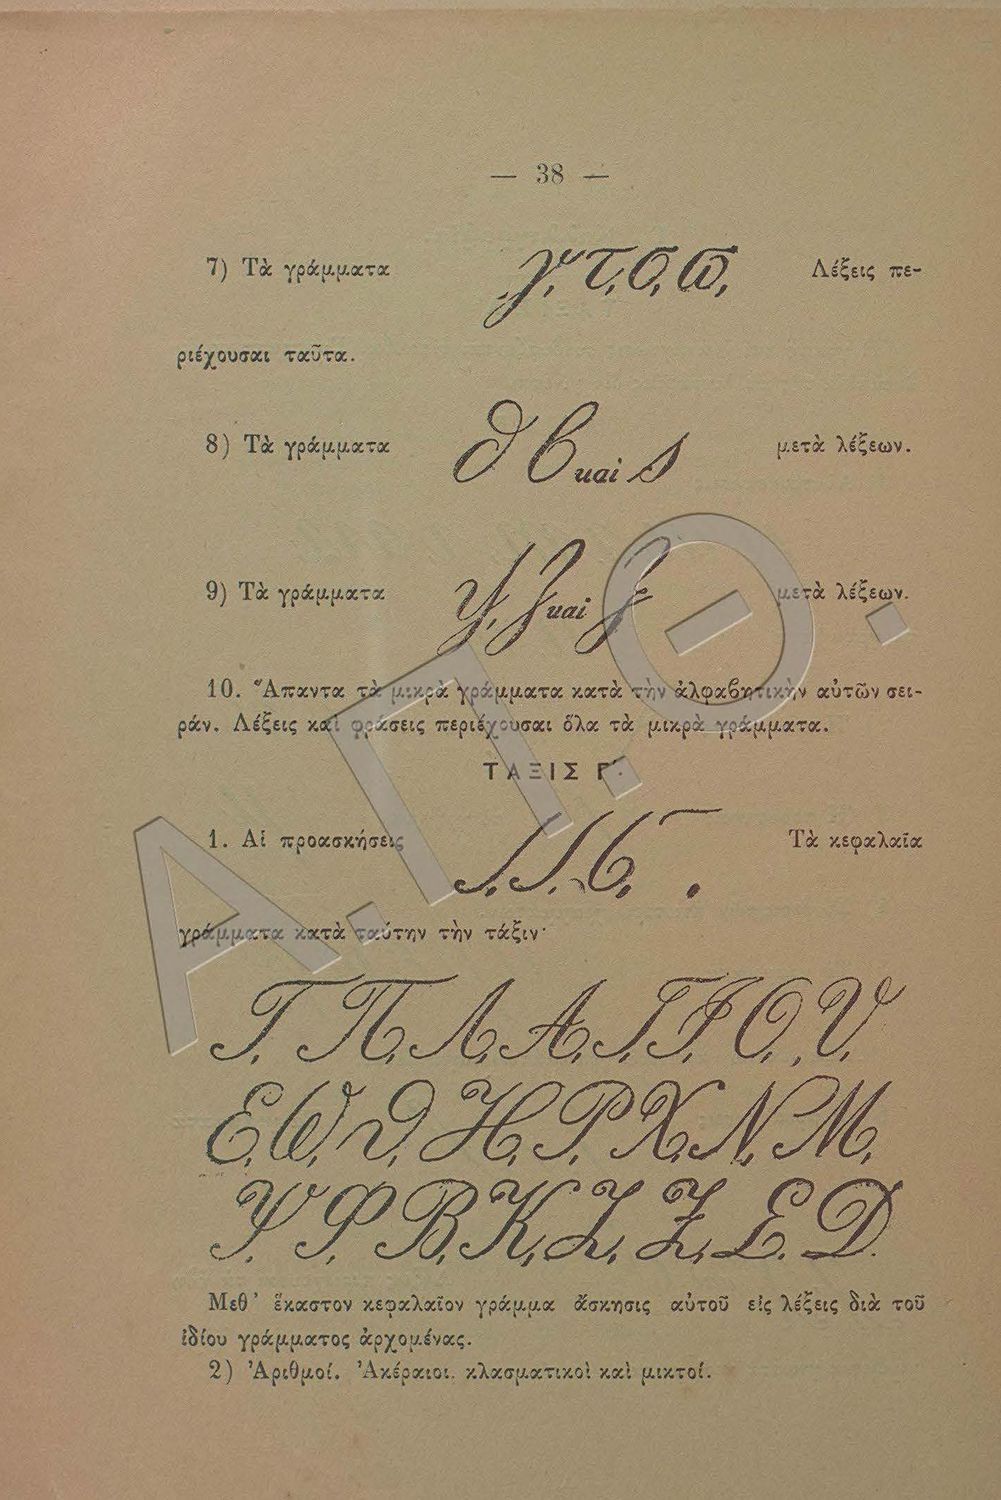 — 38 —
7) Τὰ γράμματα γ, τ, σ, ϖ, Λέξεις πε-
ριέχουσαι ταῦτα.
8) Τὰ γράμματα θ β καὶ s μετὰ λέξεων.
9) Τὰ γράμματα ψ, ζ καὶ ξ μετὰ λέξεων.
10. Ἅπαντα τὰ μικρὰ γράμματα κατὰ τὴν ἀλφαβητικὴν αὐτῶν σει-
ράν. Λέξεις καὶ φράσεις περιέχουσαι ὅλα τὰ μικρὰ γράμματα.
ΤΑΞΙΣ Γ΄.
1. Αἱ προασκήσεις Τὰ κεφαλαῖα
γράμματα κατὰ ταύτην τὴν τάξιν·
Γ, Π, Λ, Α, Τ, Ι, Ο, Υ,
Ε, Ω, Θ, Η, Ρ, Χ, Ν, Μ,
Ψ, Φ, Β, Κ, Ζ, Ξ, Σ. Δ.
Μεθ' ἕκαστον κεφαλαῖον γράμμα ἄσκησις αὐτοῦ εἰς λέξεις διὰ τοῦ
ἰδίου γράμματος ἀρχομένας.
2) Ἀριθμοί. Ἀκέραιοι, κλασματικοὶ καὶ μικτοί.
Α.Π.Θ.